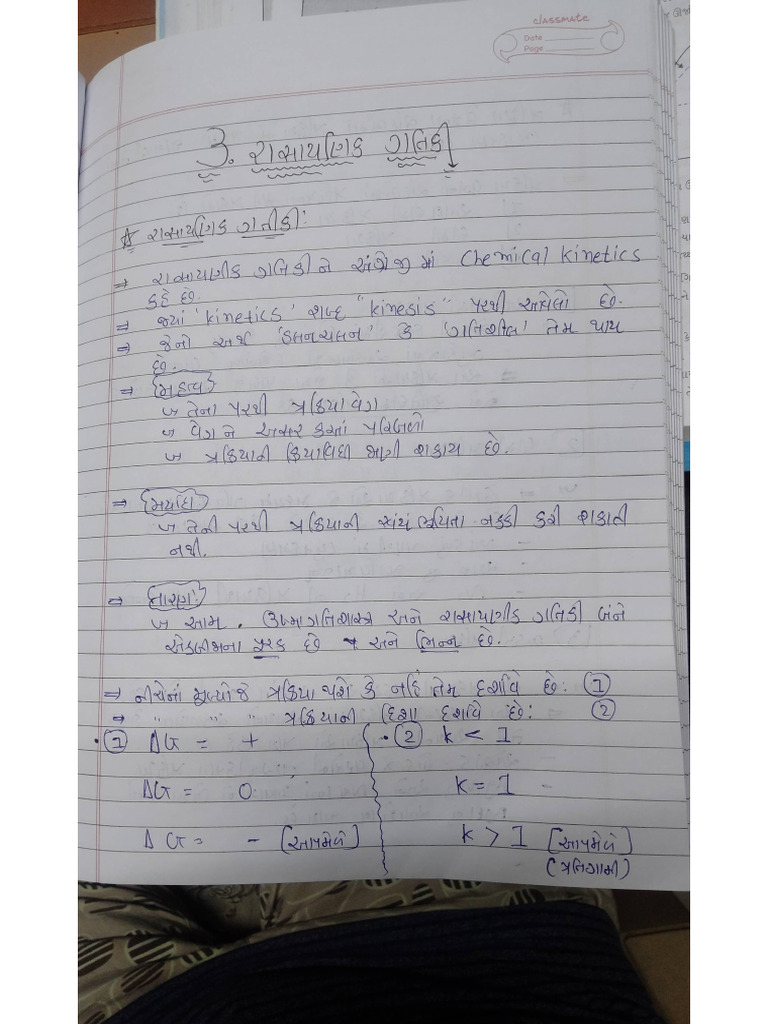 classmate
Date
Page
3. રાસાયણિક ગતિકી
☆ રાસાયણિક ગતીકી:
⇒ રાસાયણીક ગતિકીને અંગ્રેજીમાં Chemical Kinetics
કહે છે.
⇒ જ્યાં 'Kinetics' શબ્દ "Kinesis" પરથી આવેલો છે.
⇒ જેનો અર્થ 'હલનચલન' કે 'ગતિશીલ' તેમ થાય
છે.
⇒ મહત્વ
તેના પરથી પ્રક્રિયા વેગ
વેગને અસર કરતાં પરિબળો
પ્રક્રિયાની ક્રિયાવિધી જાણી શકાય છે.
⇒ મર્યાદા:
તેની પરથી પ્રક્રિયાની સ્વયં નક્કી કરી શકાતી
નથી.
⇒ તારણ:
આમ, ઉષ્માગતિશાસ્ત્ર અને રાસાયણીક ગતિકી બંને
એકબીજાના પુરક છે અને ભિન્ન છે.
⇒ નીચેનાં મુલ્યો જે પ્રક્રિયા થશે કે નહિં તેમ દર્શાવે છે: ①
⇒ " " " પ્રક્રિયાની દિશા દર્શાવે છે: ②
• ① ΔG = + • ② K < 1
ΔG = 0 K = 1
ΔG = - [આપમેળે] K > 1 [આપમેળે]
(પ્રતિગામી)